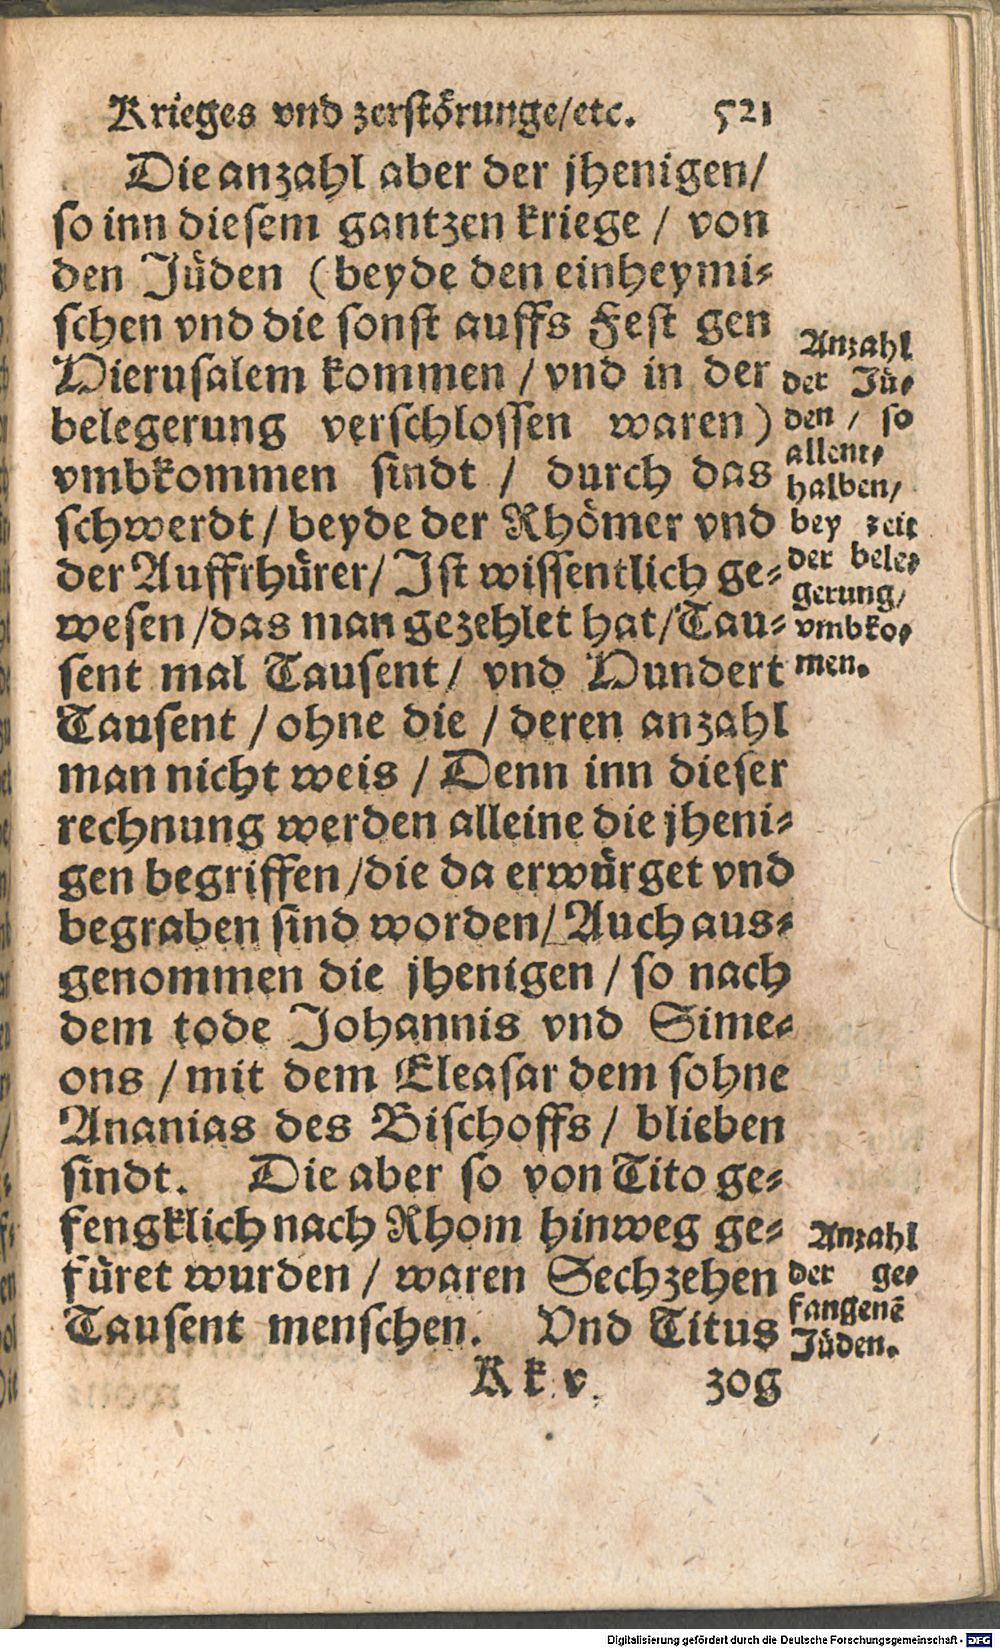 Krieges vnd zerstörunge/etc. 521
Die anzahl aber der jhenigen/
so inn diesem gantzen kriege / von
den Jüden (beyde den einheymi-
schen vnd die sonst auffs Fest gen
Hierusalem kommen / vnd in der
belegerung verschlossen waren)
vmbkommen sindt / durch das
schwerdt / beyde der Rhömer vnd
der Auffrhürer/ Ist wissentlich ge-
wesen /das man gezehlet hat/Tau-
sent mal Tausent/ vnd Hundert
Tausent / ohne die / deren anzahl
man nicht weis / Denn inn dieser
rechnung werden alleine die jheni-
gen begriffen /die da erwürget vnd
begraben sind worden/ Auch aus-
genommen die jhenigen / so nach
dem tode Johannis vnd Sime-
ons / mit dem Eleasar dem sohne
Ananias des Bischoffs / blieben
sindt. Die aber so von Tito ge-
fengklich nach Rhom hinweg ge-
füret wurden / waren Sechzehen
Tausent menschen. Vnd Titus
Kk v zog
Anzahl
der Jü-
den / so
allent-
halben/
bey zeit
der bele-
gerung/
vmbko-
men.
Anzahl
der ge-
fangenē
Jüden.
Digitalisierung gefördert durch die Deutsche Forschungsgemeinschaft - DFG